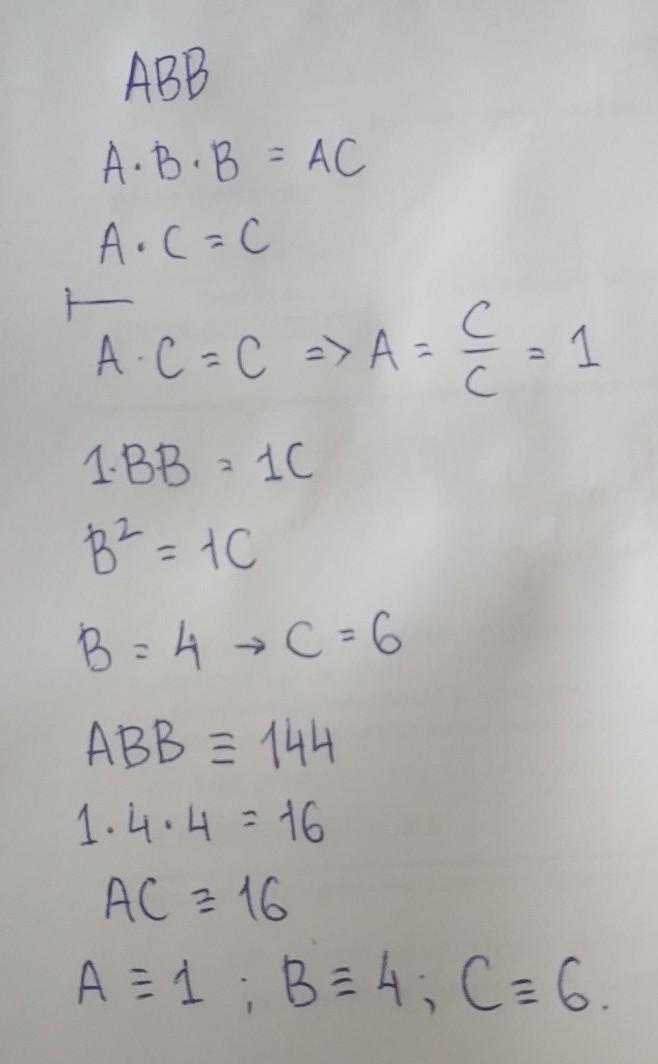 ABB
A·B·B = AC
A·C = C
A·C = C => A = C/C = 1
1·B·B = 1C
B² = 1C
B = 4 → C = 6
ABB ≡ 144
1·4·4 = 16
AC ≡ 16
A ≡ 1 ; B ≡ 4 ; C ≡ 6.